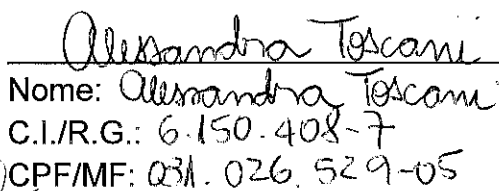 Alessandra Toscani
Nome: Alessandra Toscani
C.I./R.G.: 6.150.408-7
CPF/MF: 031.026.529-05